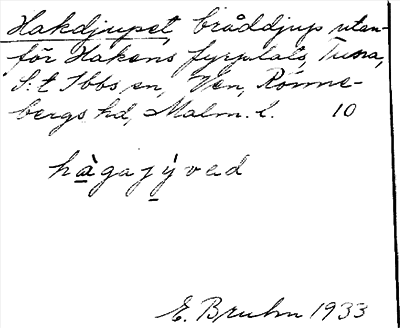 Hakdjupet, bråddjup utan-
för Hakens fyrplats, Tuna,
S:t Ibbs sn, Ven, Rönne-
bergs hd, Malm. l. 10
hàgajýved
E. Bruhn 1933